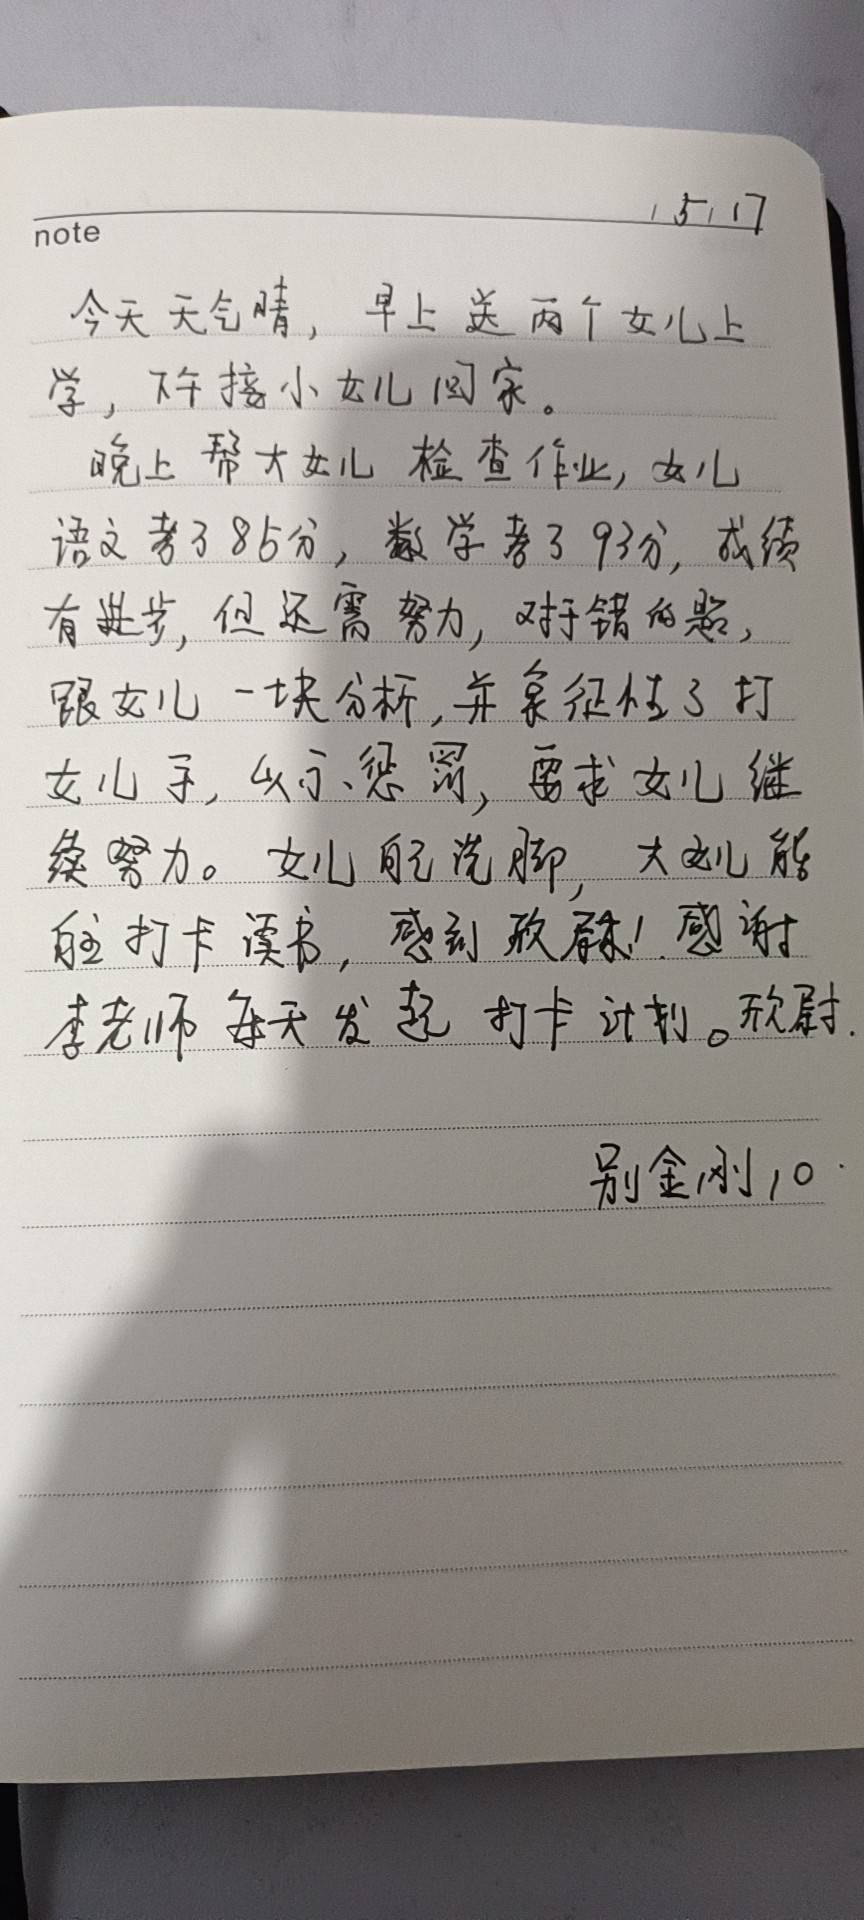 15,17
note
今天天气晴，早上送两个女儿上
学，下午接小女儿回家。
晚上帮大女儿检查作业，女儿
语文考了85分，数学考了93分，成绩
有进步，但还需努力，对于错的题，
跟女儿一块分析，并象征性了打
女儿手，以示惩罚，要求女儿继
续努力。女儿自己洗脚，大女儿能
自主打卡读书，感到欣慰！感谢
李老师每天发起打卡计划。欣尉.
别金刚10